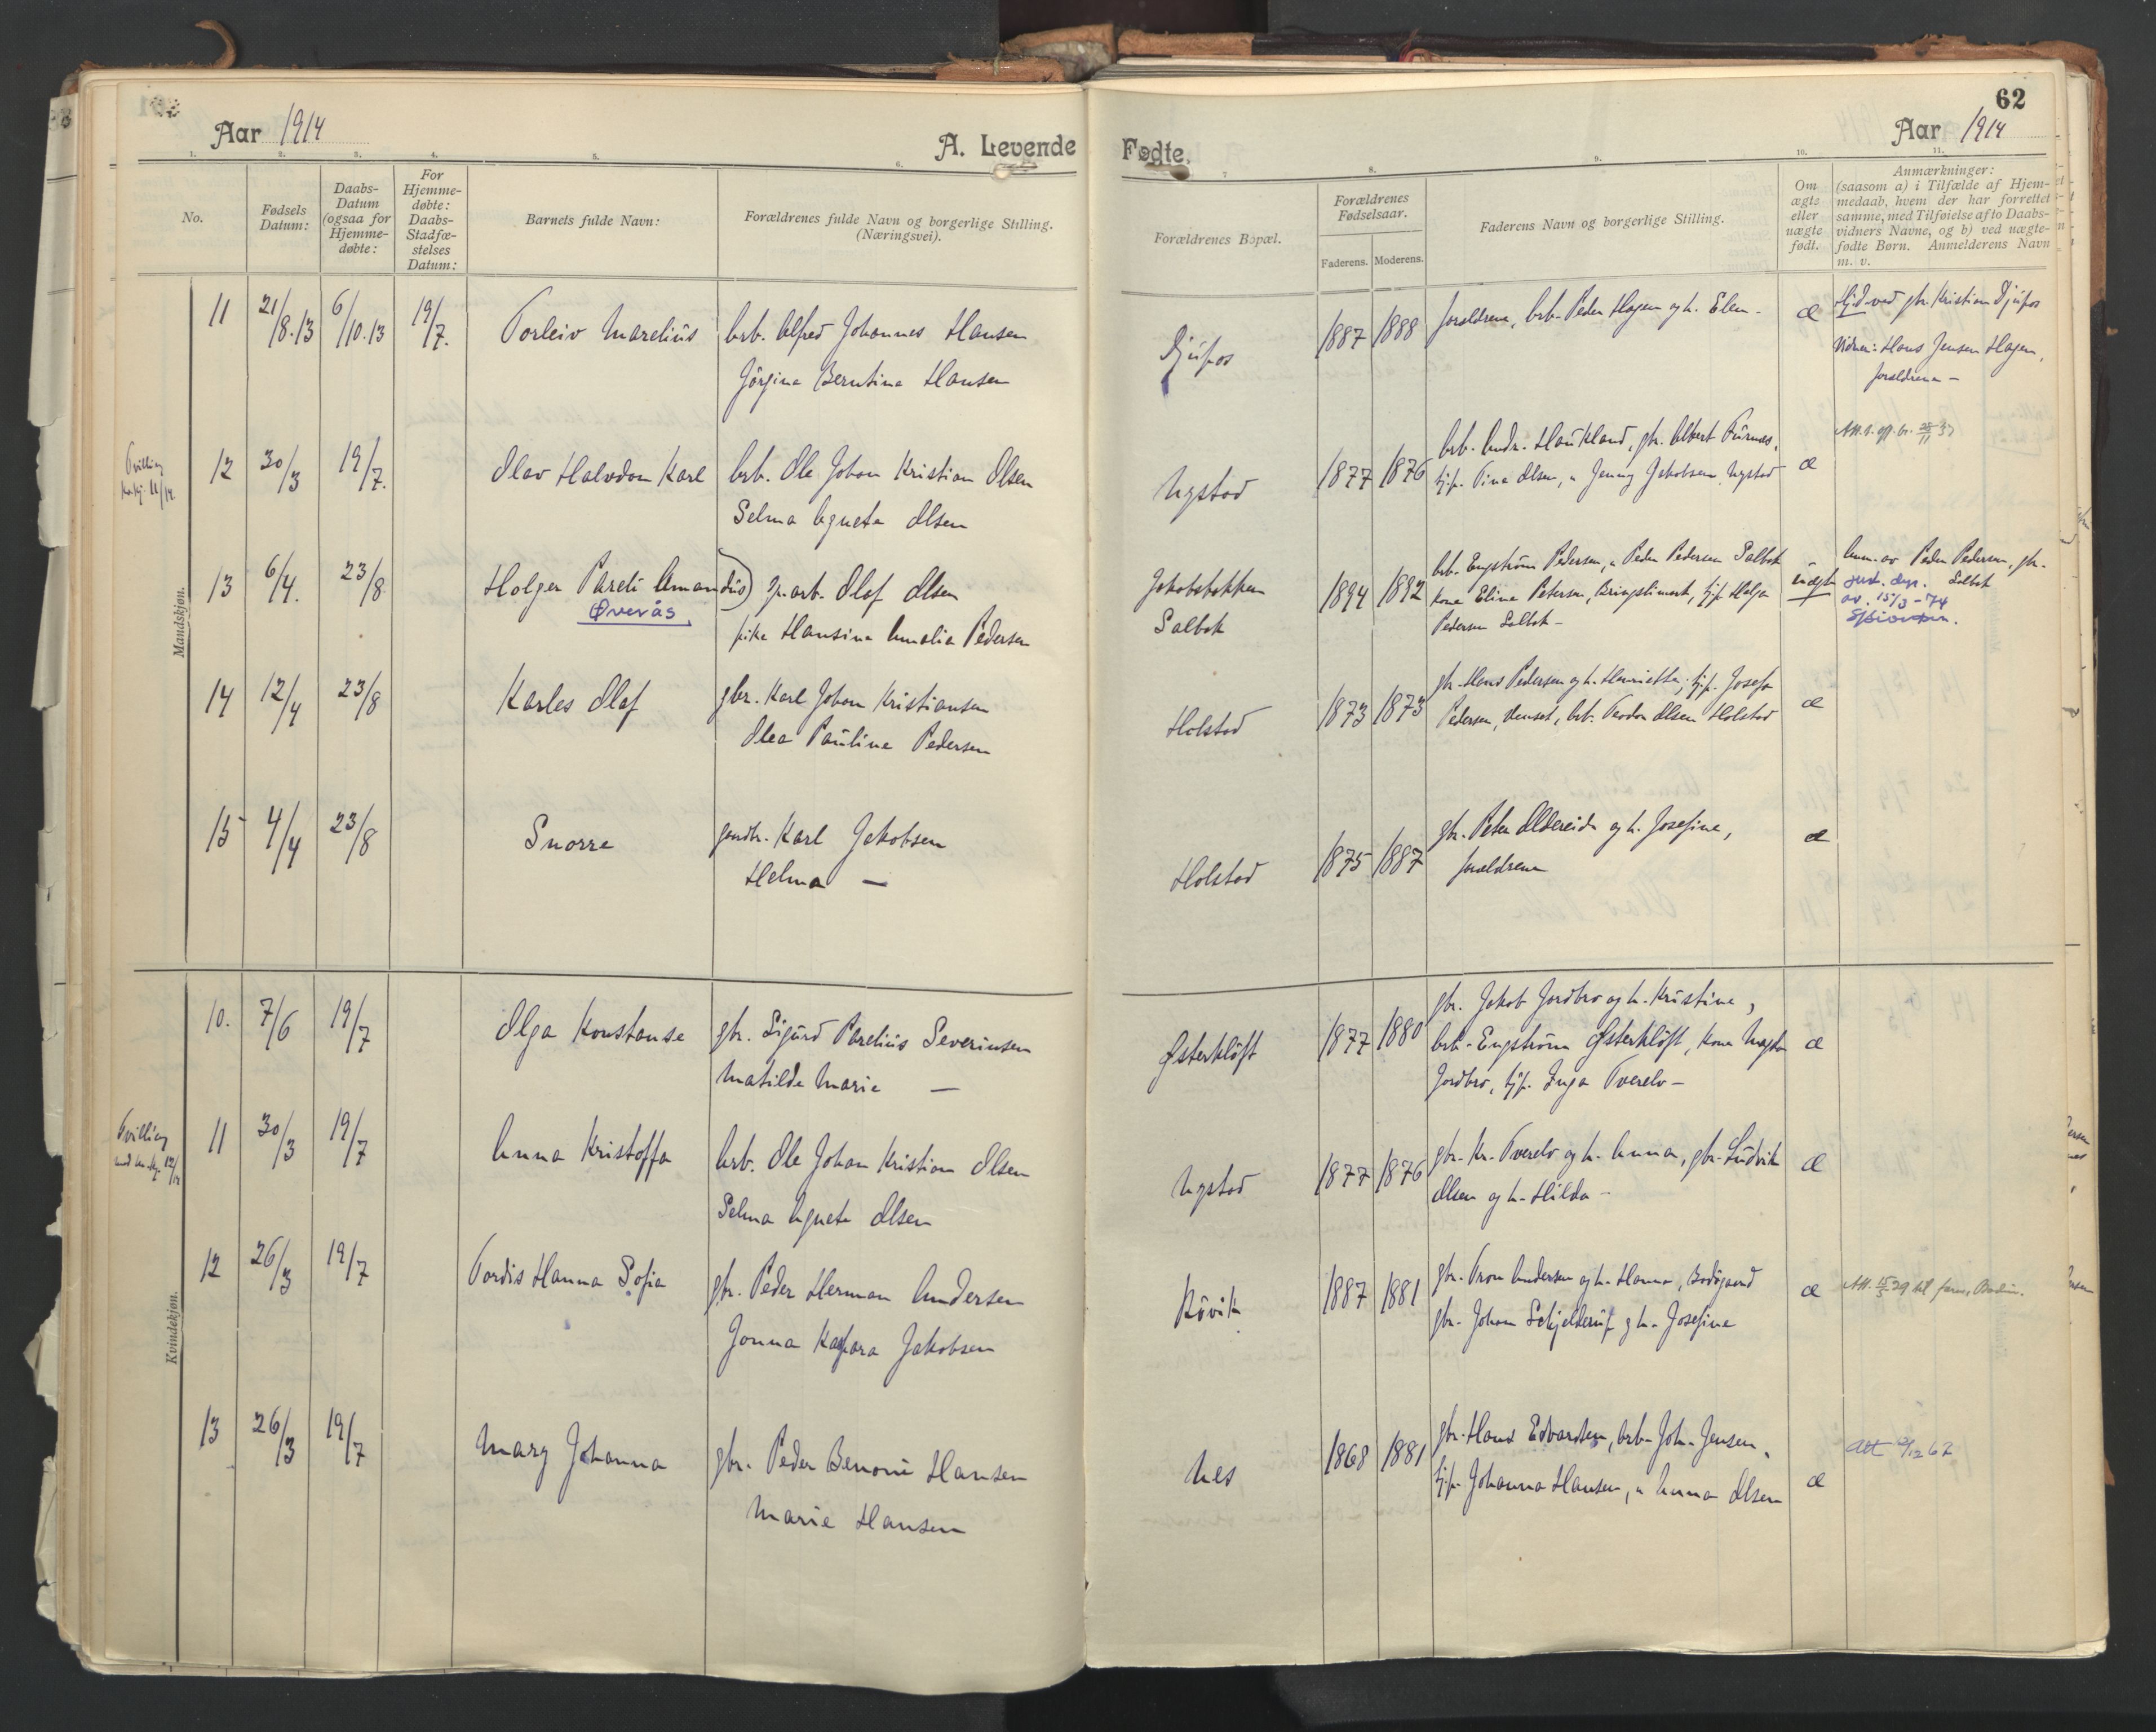 62
Aar 1914
A. Levende Fødte.
Aar 1914
1. 2. 3. 4. 5. 6. 7 8. 9. 10. 11.
No.
Fødsels Datum:
Daabs-Datum (ogsaa for Hjemme-døbte:
For Hjemme-døbte: Daabs-Stadfæ-stelses Datum:
Barnets fulde Navn:
Forældrenes fulde Navn og borgerlige Stilling. (Næringsvei).
Forældrenes Bopæl.
Forældrenes Fødselsaar.
Faderens. Moderens.
Faderens Navn og borgerlige Stilling.
Om ægte eller uægte født.
Anmærkninger:
(saasom a) i Tilfælde af Hjem-
medaab, hvem der har forrettet
samme, med Tilføielse af to Daabs-
vidners Navne, og b) ved uægte-
fødte Børn. Anmelderens Navn
m. v.
Mandskjøn.
11 21/8.13 6/10.13 19/7. Torleiv Marelius brb. Alfred Johannes Hansen
Jörgine Berntine Hansen
Djupos 1887 1888 forældrene, brb. Peder Hagen og h. Elen - æ
Hjd. ved gbr. Kristian Djupos
Vidner: Hans Jensen Hagen,
forældrene -
Tvilling
12 30/3 19/7. Olav Halvdan Karl brb. Ole Johan Kristian Olsen
Selma Agneta Olsen
Nystad 1877 1876 brb. Andr. Haukland, gbr. Albert Furnes,
tjp. Tina Olsen, " Jenny Jakobsen Nystad æ
13 6/4. 23/8 Holger Pareli Amandus) gr. arb. Olaf Olsen
Øverås
pike Hansine Amalia Pedersen
Jakobsbakken
Salbek
1894 1892 brb. Engström Pedersen, " Peder Pedersen Salbek
kone Elina Petersen, tjp Helga
Pedersen Salbek -
uægte
Anm. av Peder Pedersen, gbr.
Salbek
av. 15/3 - 74
14 12/4 23/8 Karles Olaf gbr. Karl Johan Kristiansen
Olea Pauline Pedersen
Holstad 1873 1873 gbr. Hans Pedersen og h. Henrietta; tjp. Josefa
Pedersen, brb. Teodor Olsen Holstad æ
15 4/4 23/8 Snorre gaardbr. Karl Jakobsen
Helma —
Holstad 1875 1887 gbr. Peter Oldereide og h. Josefine,
forældrene
æ
Kvindekjøn.
10. 7/6 19/7 Olga Konstanse gbr. Sigurd Parelius Severinsen
Matilde Marie —
Østerkløft 1877 1880 gbr. Jakob Jordbro og h. Kristine,
brb. Engström Østerkløft, kone
Jordbro, tjp. Inga Tverelv - æ
Tvilling
11 30/3 19/7 Anna Kristoffa brb. Ole Johan Kristian Olsen
Selma Agneta Olsen
Nystad 1877 1876 gbr. Kr. Tverelv og h. Anna, gbr. Ludvik
Olsen og h. Hilda - æ
12 26/3 19/7 Tordis Hanna Sofie gbr. Peder Herman Andersen
Jonna Kaspara Jakobsen
Røvik 1887 1881 gbr. Tron Andersen og h. Hanna, Bodøgaard
gbr. Johan Schjelderup og h. Josefine
æ Att. 15/3 29 til
13 26/3 19/7 Mary Johanna gbr. Peder Benoni Hansen
Marie Hansen
Nes 1868 1881 gbr. Hans Edvardsen, brb. Joh. Jensen,
tjp. Johanna Hansen, " Anna Olsen
æ